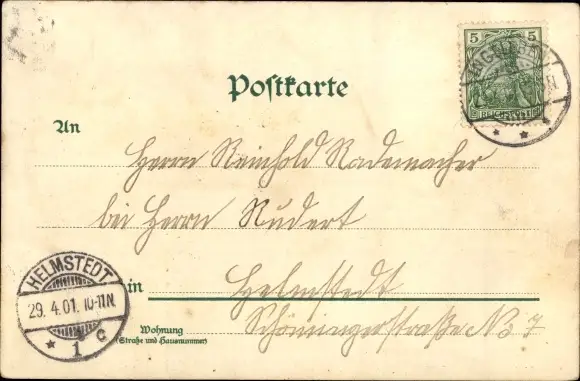 5 5
REICHSPOST
Postkarte
An
Herrn Reinhold Rademacher
bei Herrn Rudert
in Helmstedt
Wohnung
(Straße und Hausnummer)
Schöningerstraße No 7
HELMSTEDT
29. 4. 01. 10-11N.
* 1 c